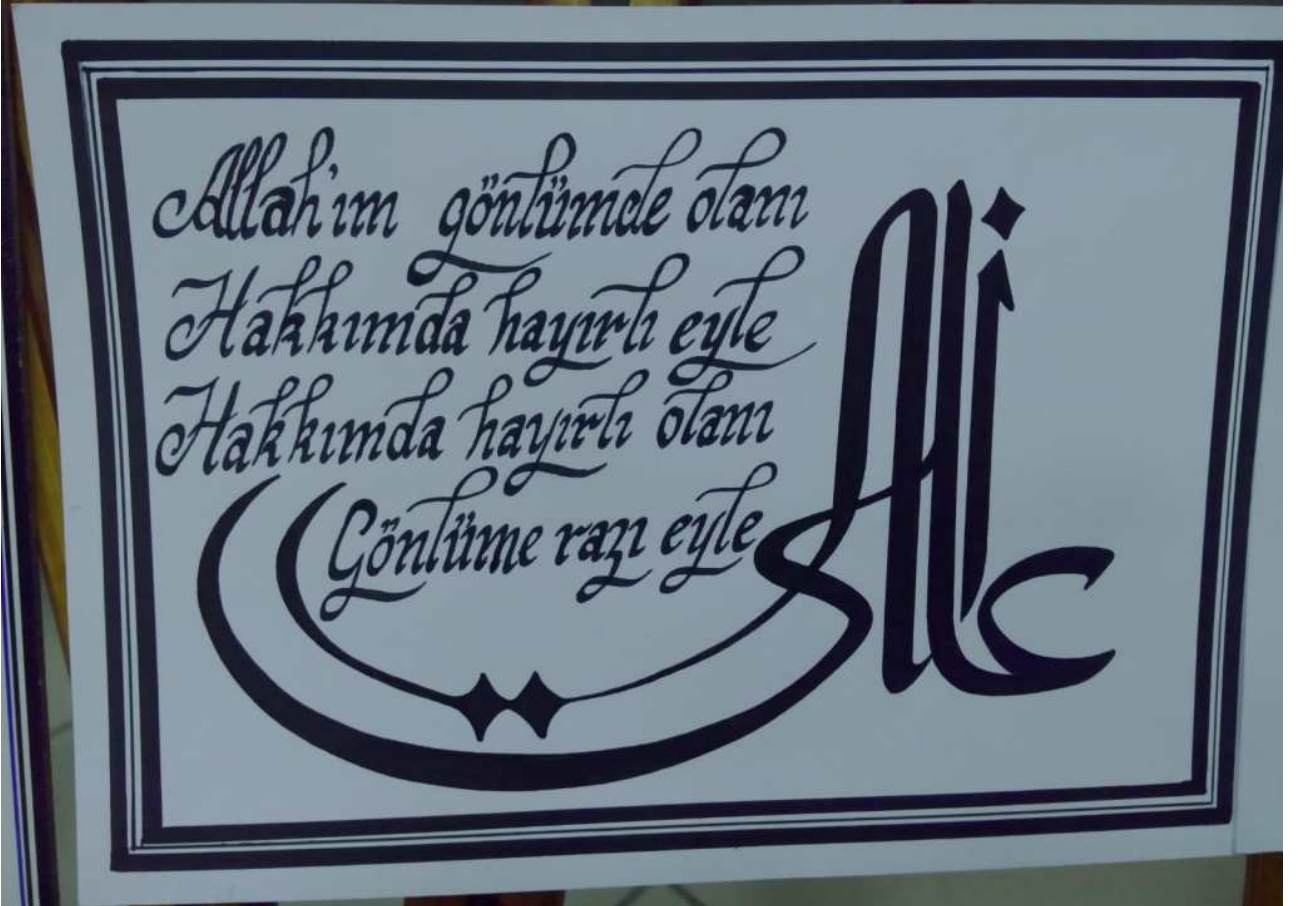 Allah'ım gönlümde olanı
Hakkımda hayırlı eyle
Hakkımda hayırlı olanı
Gönlüme razı eyle
Ali
علي